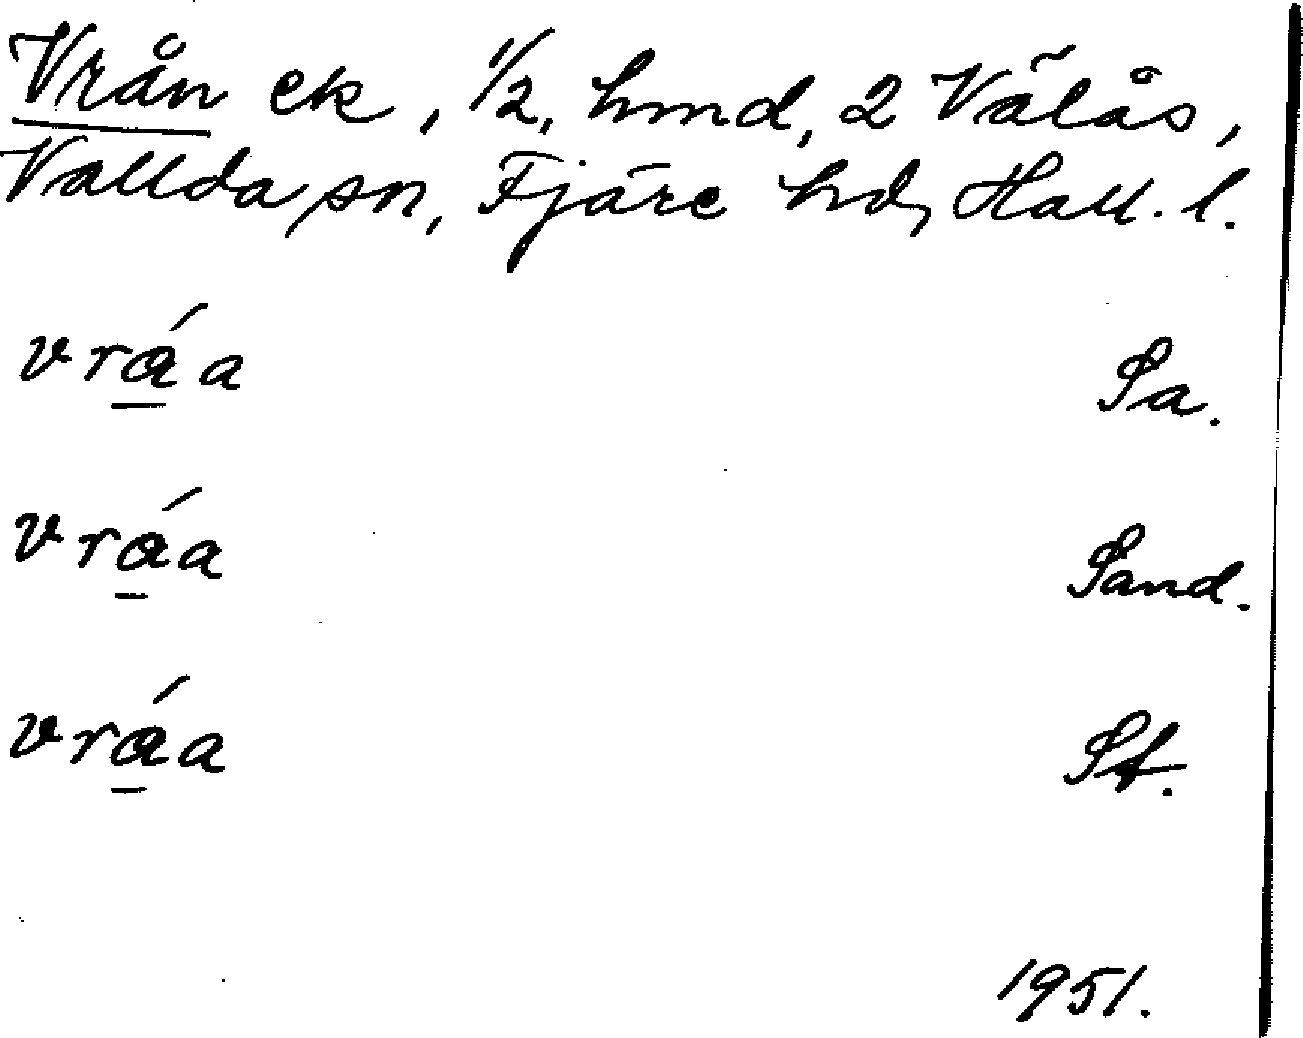 Vrån ek, 1/2, hmd, 2 Välås,
Vallda sn, Fjäre hd, Hall. l.
vráa Sa.
vráa Sand.
vráa St.
1951.